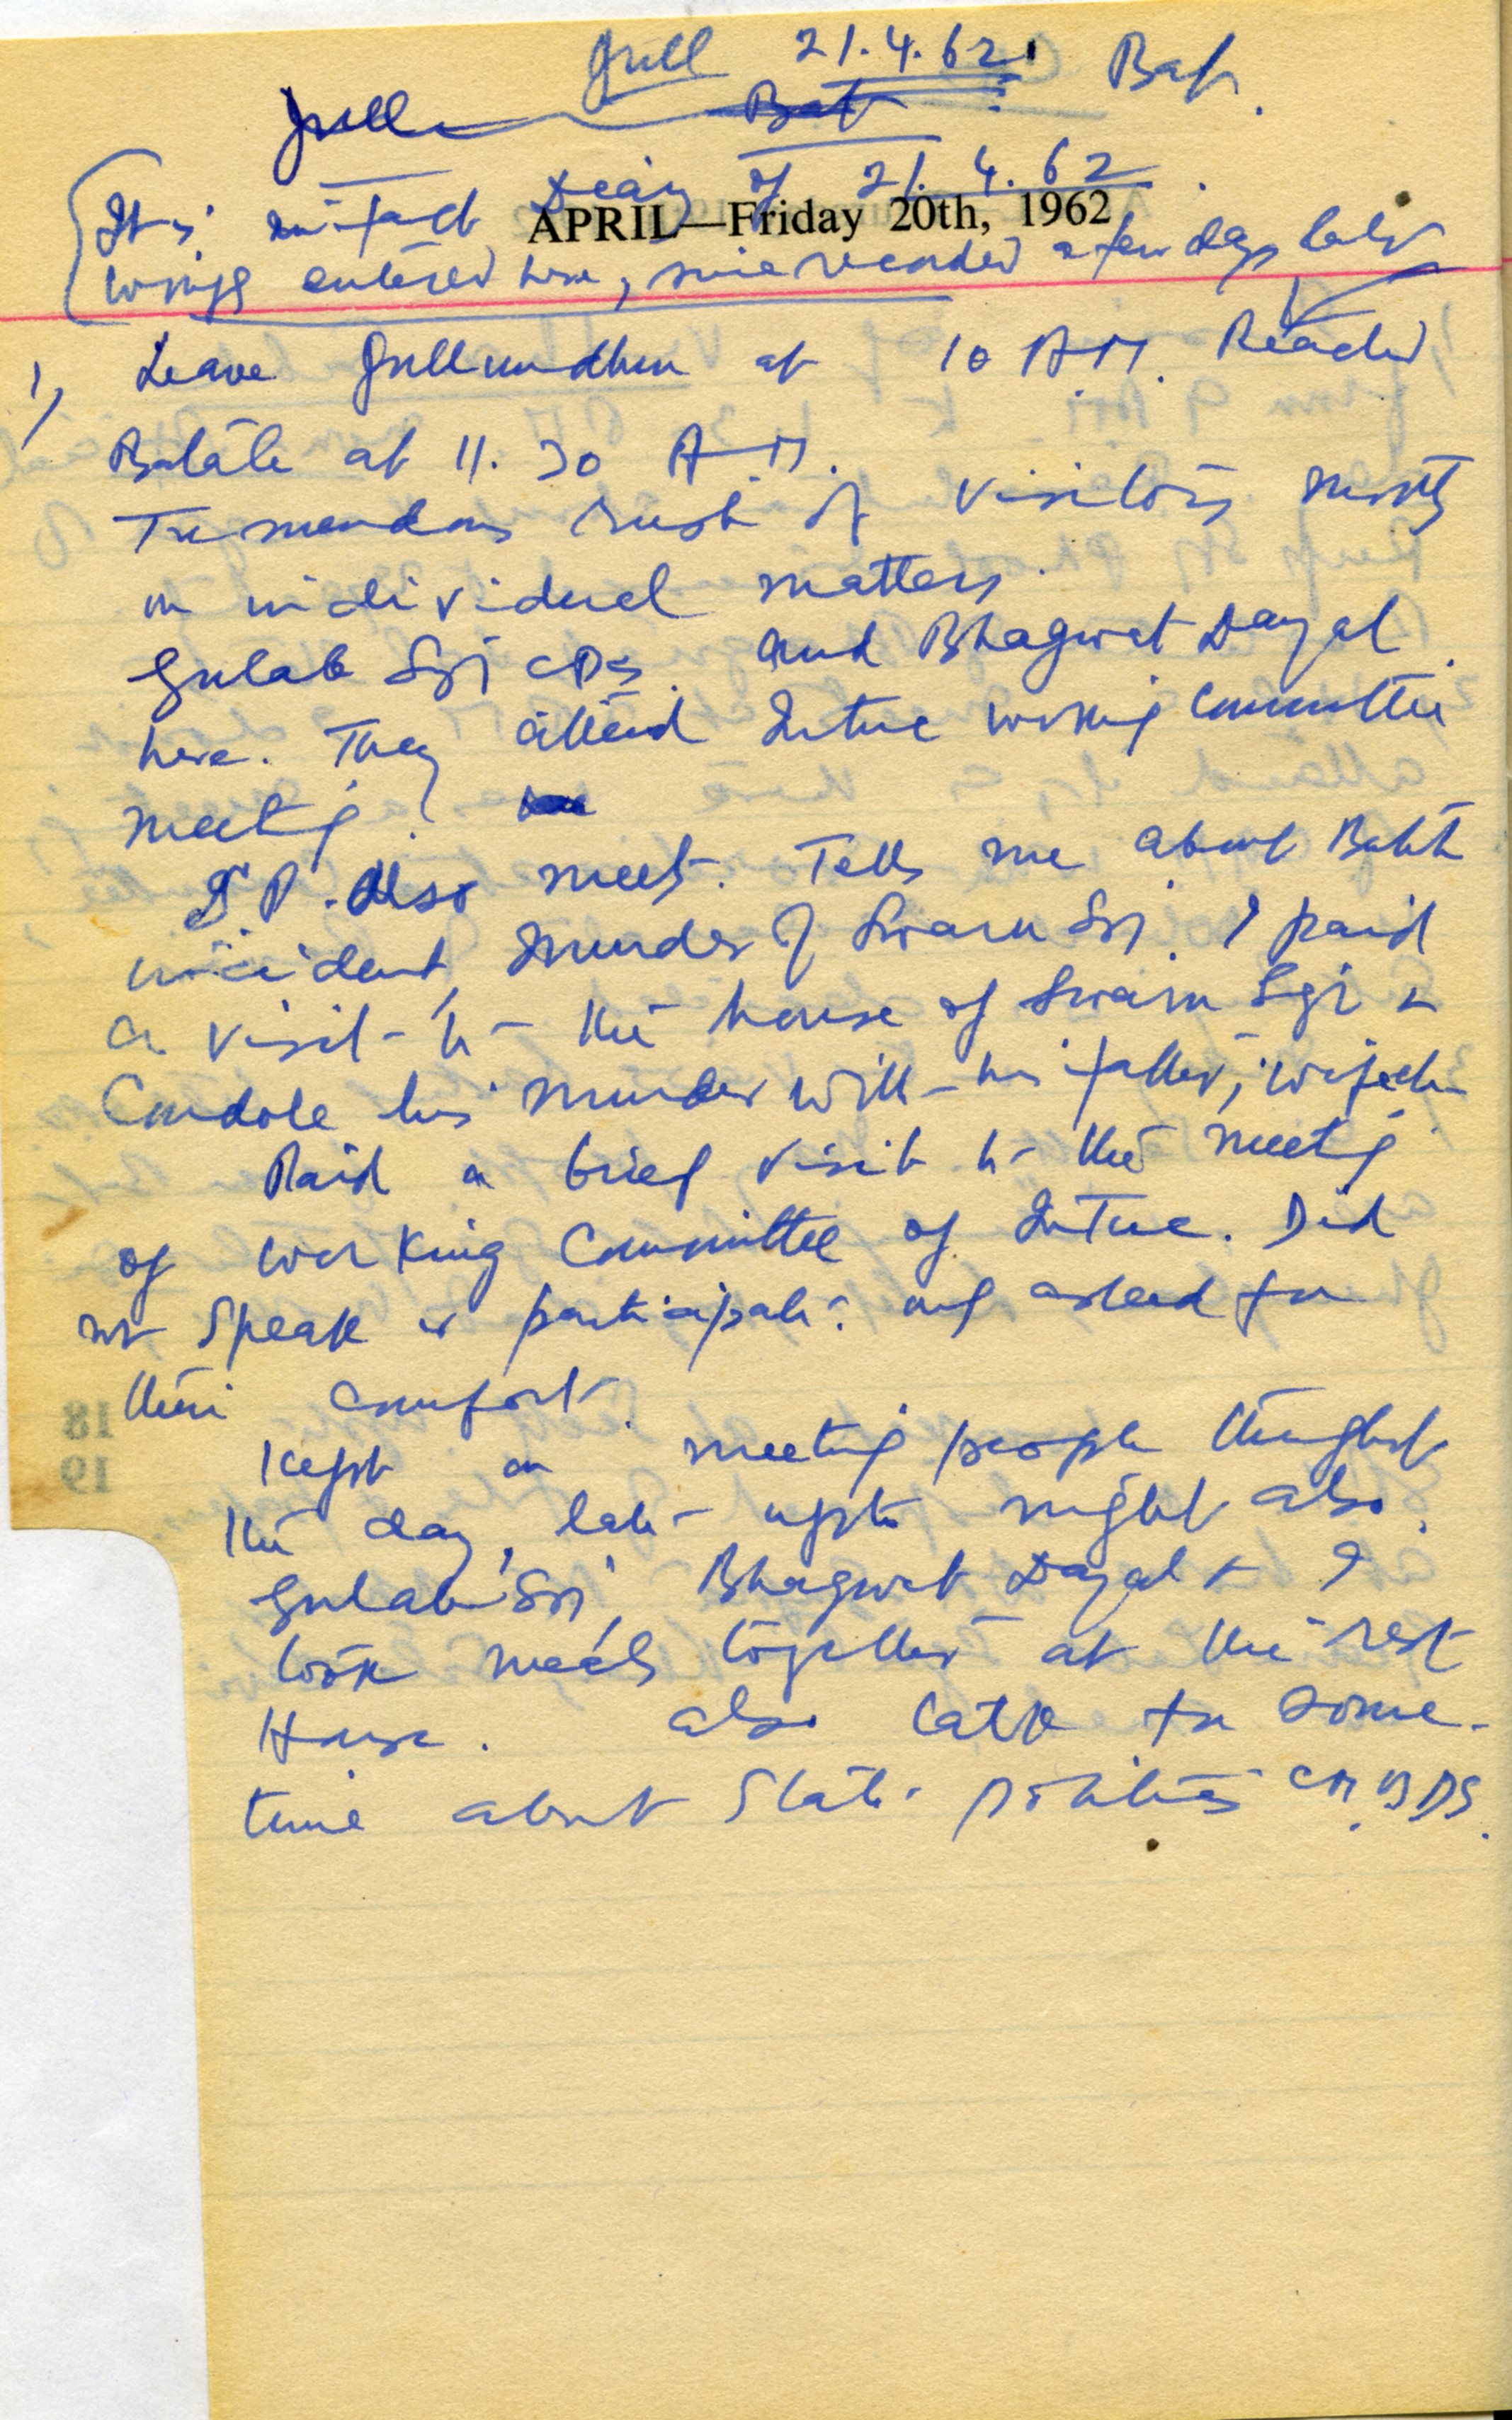 Jull 21.4.62 Bat.
Jull Bat
It is in fact Diary of 21.4.62.
APRIL—Friday 20th, 1962
wrongly entered here, since recorded a few days later
1) Leave Jullundhur at 10 AM. Reached
Batala at 11.30 AM.
Tremendous rush of visitors mostly
on individual matters.
Gulab Sgi CPS. and Bhagwat Dayal
here. They attend Intuc working Committee
meeting.
S.P. Also meets. Tells me about
incident, murder of Swarn Sgi. I paid
a visit to the house of Swarn Sgi &
Condole his murder with his father, wife etc.
Paid a brief visit to the meeting
of working Committee of Intuc. Did
not speak or participate: only asked for
their comfort.
Kept on meeting people throughout
the day, late upto night also.
Gulab Sgi, Bhagwat Dayal & I
took meals together at the rest
House. also talk for some-
time about State politics